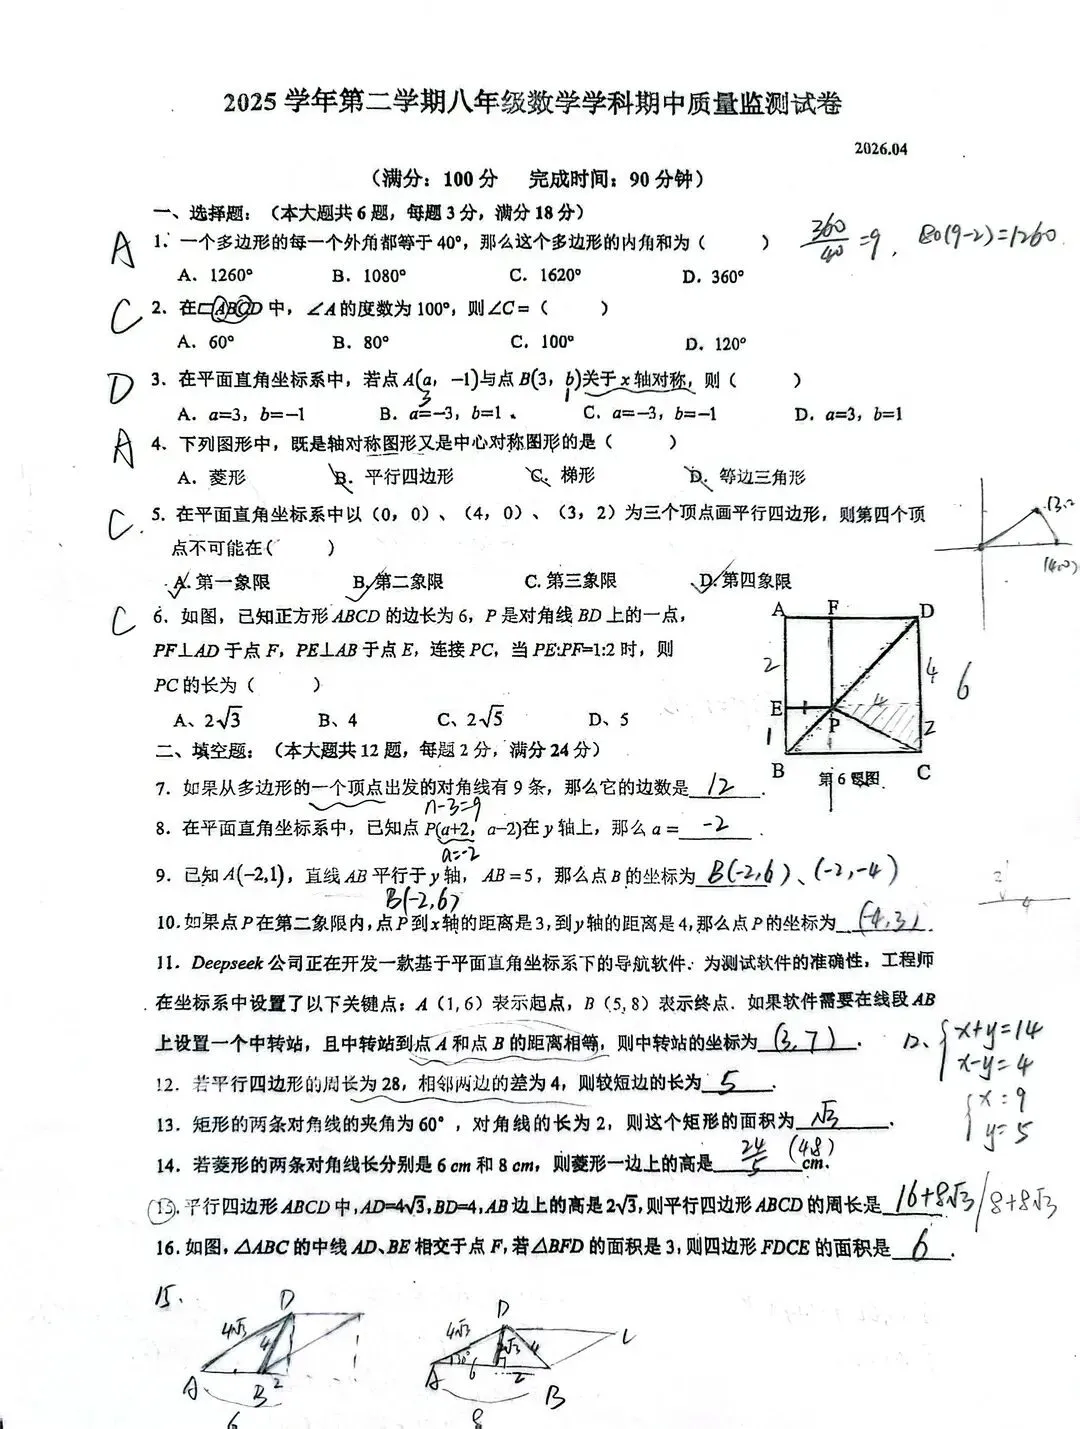 2025 学年第二学期八年级数学学科期中质量监测试卷
2026.04
（满分：100 分 完成时间：90 分钟）
一、选择题：（本大题共 6 题，每题 3 分，满分 18 分）
A 1. 一个多边形的每一个外角都等于 40°，那么这个多边形的内角和为（ ） 360/40 =9, 180(9-2)=1260
A．1260° B．1080° C．1620° D．360°
C 2．在▱ABCD 中，∠A 的度数为 100°，则∠C =（ ）
A．60° B．80° C．100° D．120°
D 3．在平面直角坐标系中，若点 A(a，-1)与点 B(3，b)关于 x 轴对称，则（ ）
3 1
A．a=3，b=-1 B．a=-3，b=1 C．a=-3，b=-1 D．a=3，b=1
A 4．下列图形中，既是轴对称图形又是中心对称图形的是（ ）
A．菱形 B．平行四边形 C．梯形 D．等边三角形
C 5．在平面直角坐标系中以（0，0）、（4，0）、（3，2）为三个顶点画平行四边形，则第四个顶
点不可能在（ ）
(3,2)
(4,0)
A．第一象限 B．第二象限 C. 第三象限 D．第四象限
C 6．如图，已知正方形 ABCD 的边长为 6，P 是对角线 BD 上的一点，
PF⊥AD 于点 F，PE⊥AB 于点 E，连接 PC，当 PE:PF=1:2 时，则
PC 的长为（ ）
A、2√3 B、4 C、2√5 D、5
A F D
2 4 6
E 4
P
1 2
B C
第 6 题图
二、填空题：（本大题共 12 题，每题 2 分，满分 24 分）
7．如果从多边形的一个顶点出发的对角线有 9 条，那么它的边数是 12 .
n-3=9
8．在平面直角坐标系中，已知点 P(a+2，a-2)在 y 轴上，那么 a = -2 .
a=-2
9．已知 A(-2,1)，直线 AB 平行于 y 轴，AB = 5，那么点 B 的坐标为 B(-2,6)、(-2,-4)
B(-2,6)
10. 如果点 P 在第二象限内，点 P 到 x 轴的距离是 3，到 y 轴的距离是 4，那么点 P 的坐标为 (-4,3) .
11．Deepseek 公司正在开发一款基于平面直角坐标系下的导航软件．为测试软件的准确性，工程师
在坐标系中设置了以下关键点：A（1, 6）表示起点，B（5, 8）表示终点．如果软件需要在线段 AB
上设置一个中转站，且中转站到点 A 和点 B 的距离相等，则中转站的坐标为 (3,7) .
12、 { x+y=14
x-y=4
{ x=9
y=5
12．若平行四边形的周长为 28，相邻两边的差为 4，则较短边的长为 5 .
13．矩形的两条对角线的夹角为 60°，对角线的长为 2，则这个矩形的面积为 √3 .
14．若菱形的两条对角线长分别是 6 cm 和 8 cm，则菱形一边上的高是 24/5 (4.8) cm.
15. 平行四边形 ABCD 中，AD=4√3，BD=4，AB 边上的高是 2√3，则平行四边形 ABCD 的周长是 16+8√3/8+8√3
16. 如图，△ABC 的中线 AD、BE 相交于点 F，若△BFD 的面积是 3，则四边形 FDCE 的面积是 6 .
15、
D
4√3 4
A B 2
6
D
4√3 2√3 4
30° 6 2
A B
8